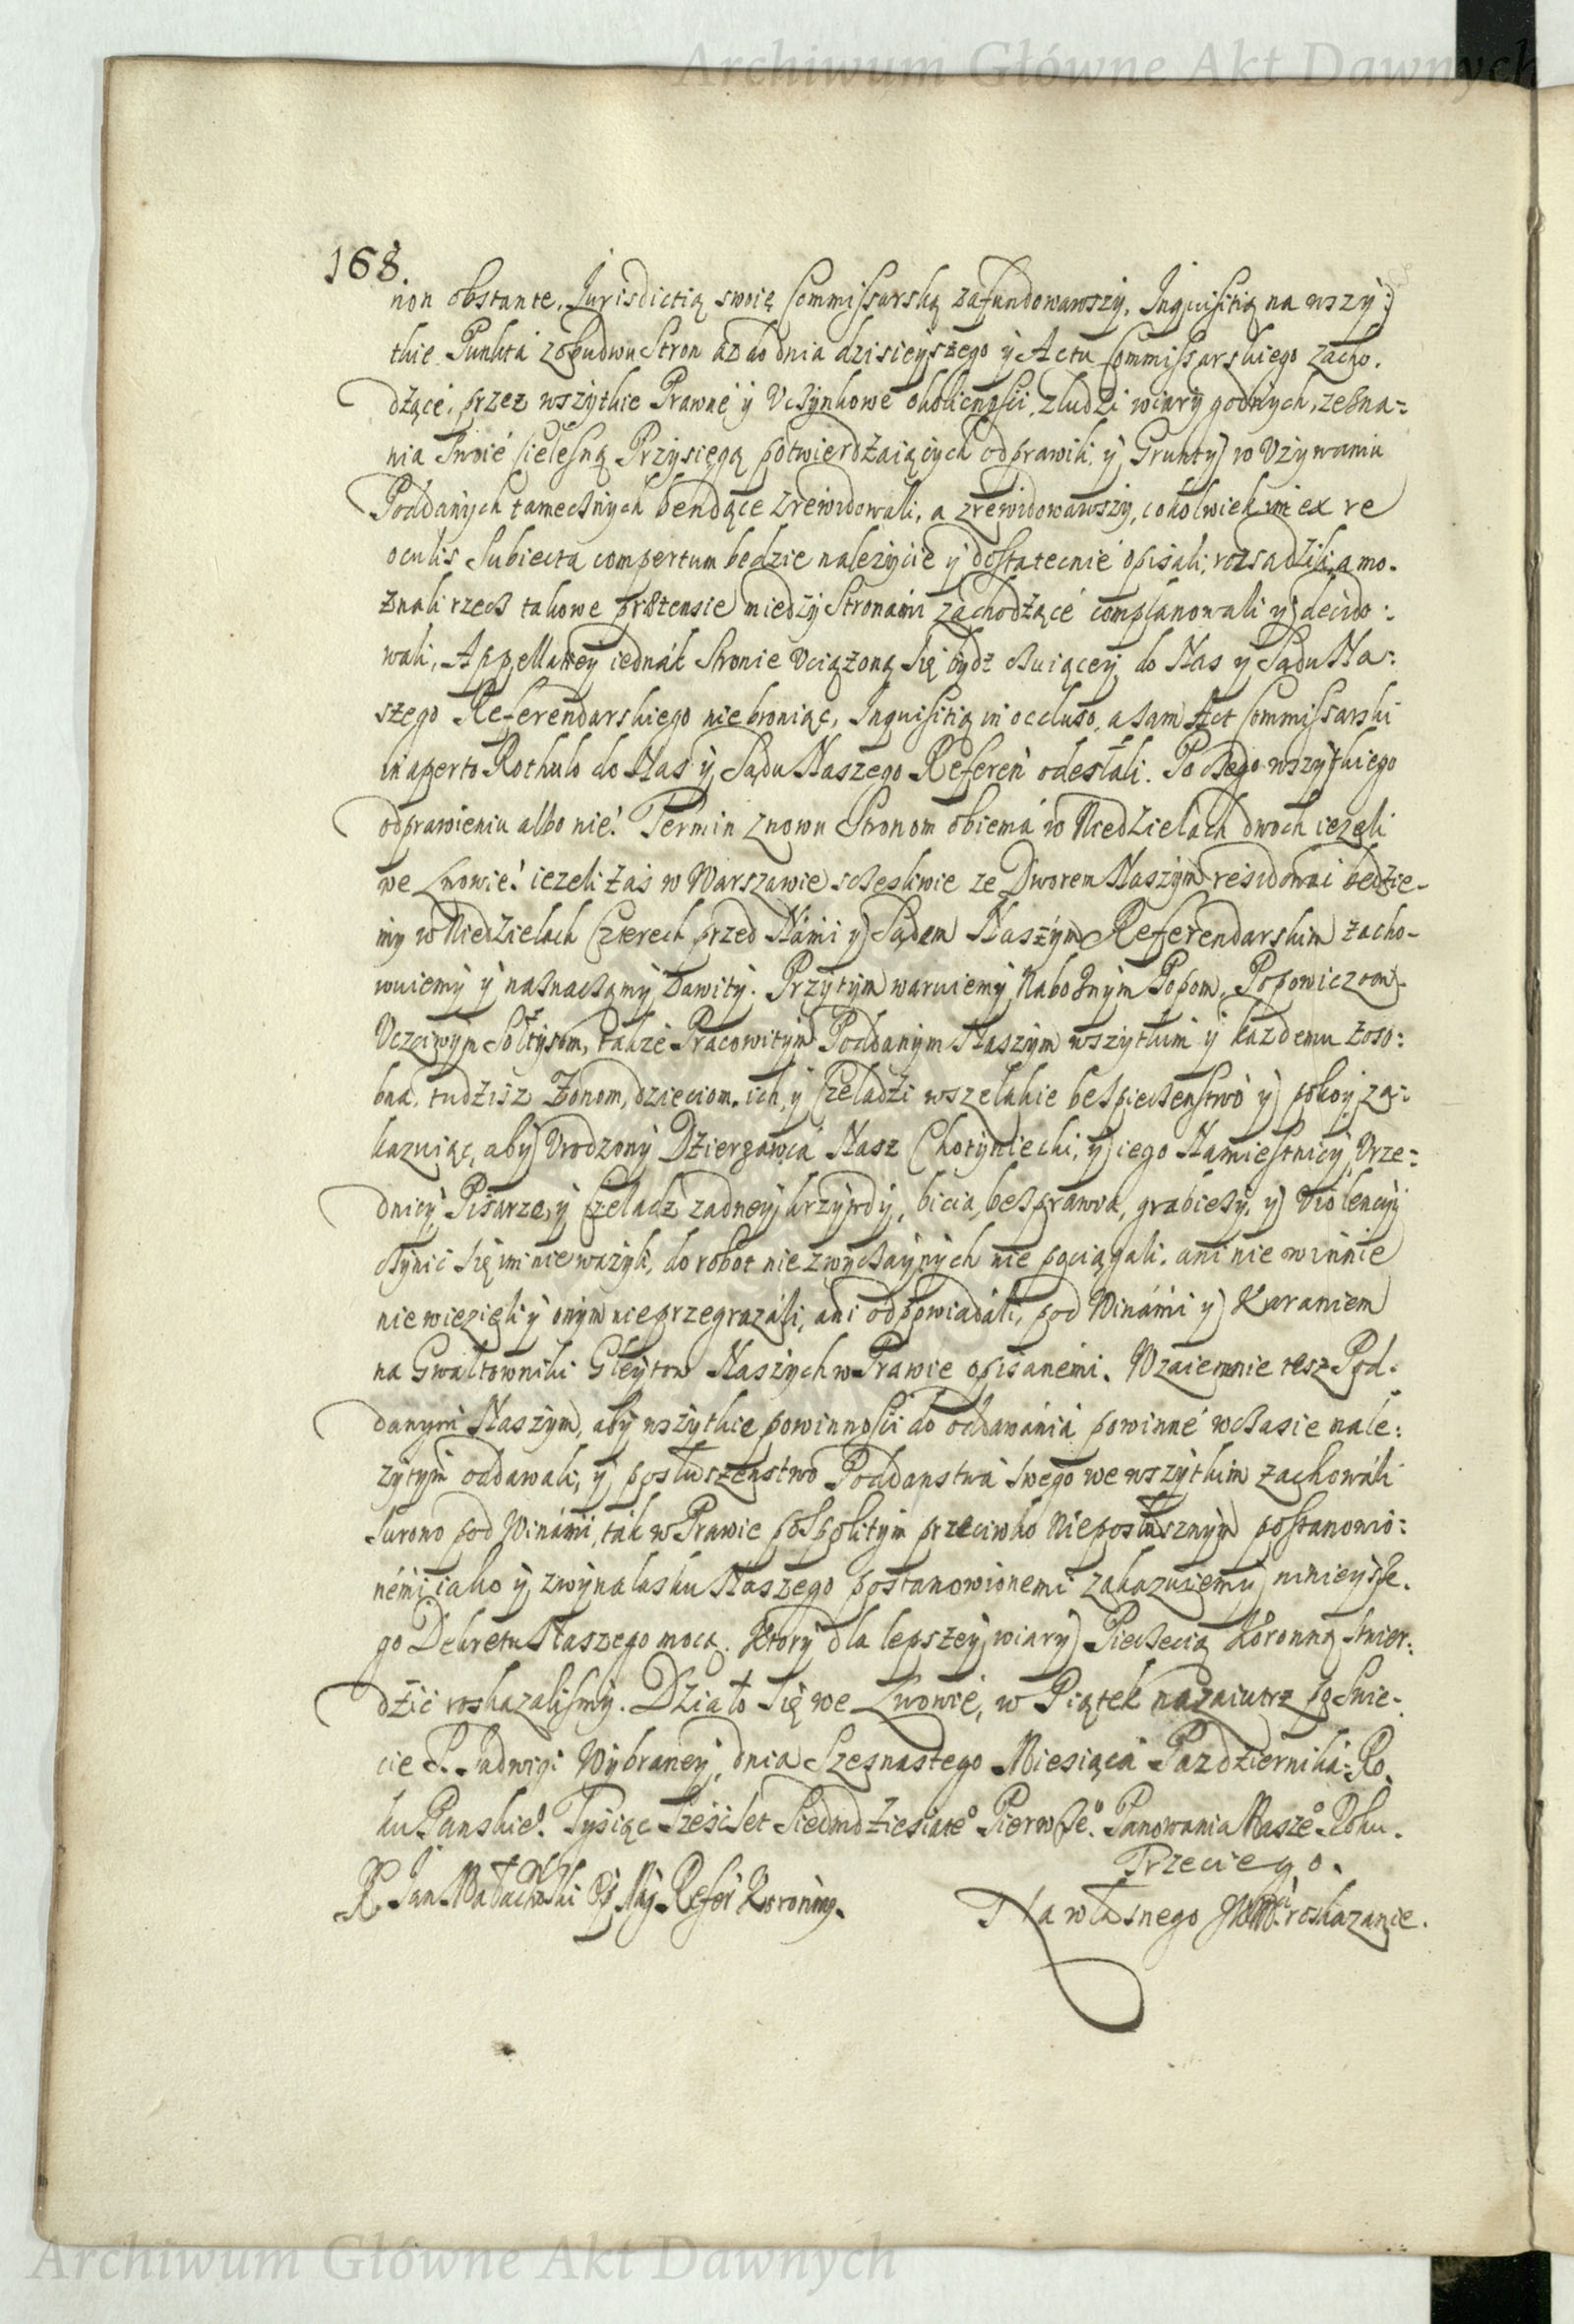 Archiwum Główne Akt Dawnych
168.
non obstante, Iurisdictią swoię Commissarską zafundowawszy, Inquisitią na wszy:
tkie Punkta zobudwu Stron aż do dnia dzisieyszego y Actu Commissarskiego zacho-
dzące, przez wszytkie Prawne y Vczynkowe okolicności, z ludzi wiary godnych, zezna=
nia swoie Cielesną Przysięgą potwierdzaiących odprawili, y Grunty w Vzywaniu
Poddanych tamecznych bendące zrewidowali, a zrewidowawszy, cokolwiek im ex re
oculis Subiecta compertum bedzie należycie y dostatecnie opisali, rozsadzili, a mo-
żnali rzecz takowe prætensie między Stronami zachodzące complanowali y decido:
wali, Appellatiey iednák Stronie Vciążoną się bydz czuiącey do Nas y Sądu Na:
szego Referendarskiego nie broniąc, Inquisitią in occluso, a sam Act Commissarski
in aperto Rothulo do Nas y Sądu Naszego Referen odesłali. Po czego wszytkiego
odprawieniu albo nie. Termin znowu Stronom obiema w Niedzielach dwoch ieżeli
we Lwowie. iezeli zaś w Warszawie sczesliwie ze Dworem Naszym residowai bedzie-
my w Niedzielach Czterech przed Námi y Sądem Naszym Referendarskim zacho-
wuiemy y naznaczamy Zawity. Przytym waruiemy Nabożnym Popom, Popowiczom
Vczciwym Sołtysom, także Pracowitym Poddanym Naszym wszytkim y każdemu zoso:
bna, tudzisz Żonom, dzieciom ich y Czeladzi wszelakie bespieczenstwo y pokoy za:
kazuiąc, aby Vrodzony Dzierzawca Nasz Chotyniecki, y iego Namiestnicy, Vrze=
dnicy Pisarze, y Czeladz zadney krzywdy, bicia, bezprawia, grabiezy, y violencyi
czynic się im nie ważyli, do robot niezwyczaynych nie pociągali, ani nie winnie
nie wiezieli y onym nie przegrazáli, ani odpowiadáli, pod Winámi y Karaniem
na Gwałtowniki Gleytow Naszych w Prawie opisanemi. Wzaiemnie tesz Pod-
danym Naszym, aby wszytkie powinnosci do oddawánia powinne w czasie nale:
zytym oddawali, y posłuszenstwo Poddanstwa swego we wszytkim zachowáli
surowo pod Winámi, ták w Prawie pospolitym przeciwko Nieposłusznym postanowio:
némi, iako y z wynalasku Naszego postanowionemi zakazuiemy, ninieysze-
go Dekretu Naszego mocą. Który dla lepszey wiary Pieczecią Koronną stwier:
dzić roskazalismy. Działo się we Lwowie, w Piątek nazaiutrz po Swie-
cie S. Jadwigi Wybraney, dnia Szesnastego Miesiąca Pazdziernika Ro-
ku Panskie. Tysiąc Sześćset Siedmdziesiate° Pierwsze°. Panowania Nasze° Roku.
Trzeciego.
X. Jan Małachowski Refer Koronny.
Na własnego roskazanie.
Archiwum Główne Akt Dawnych